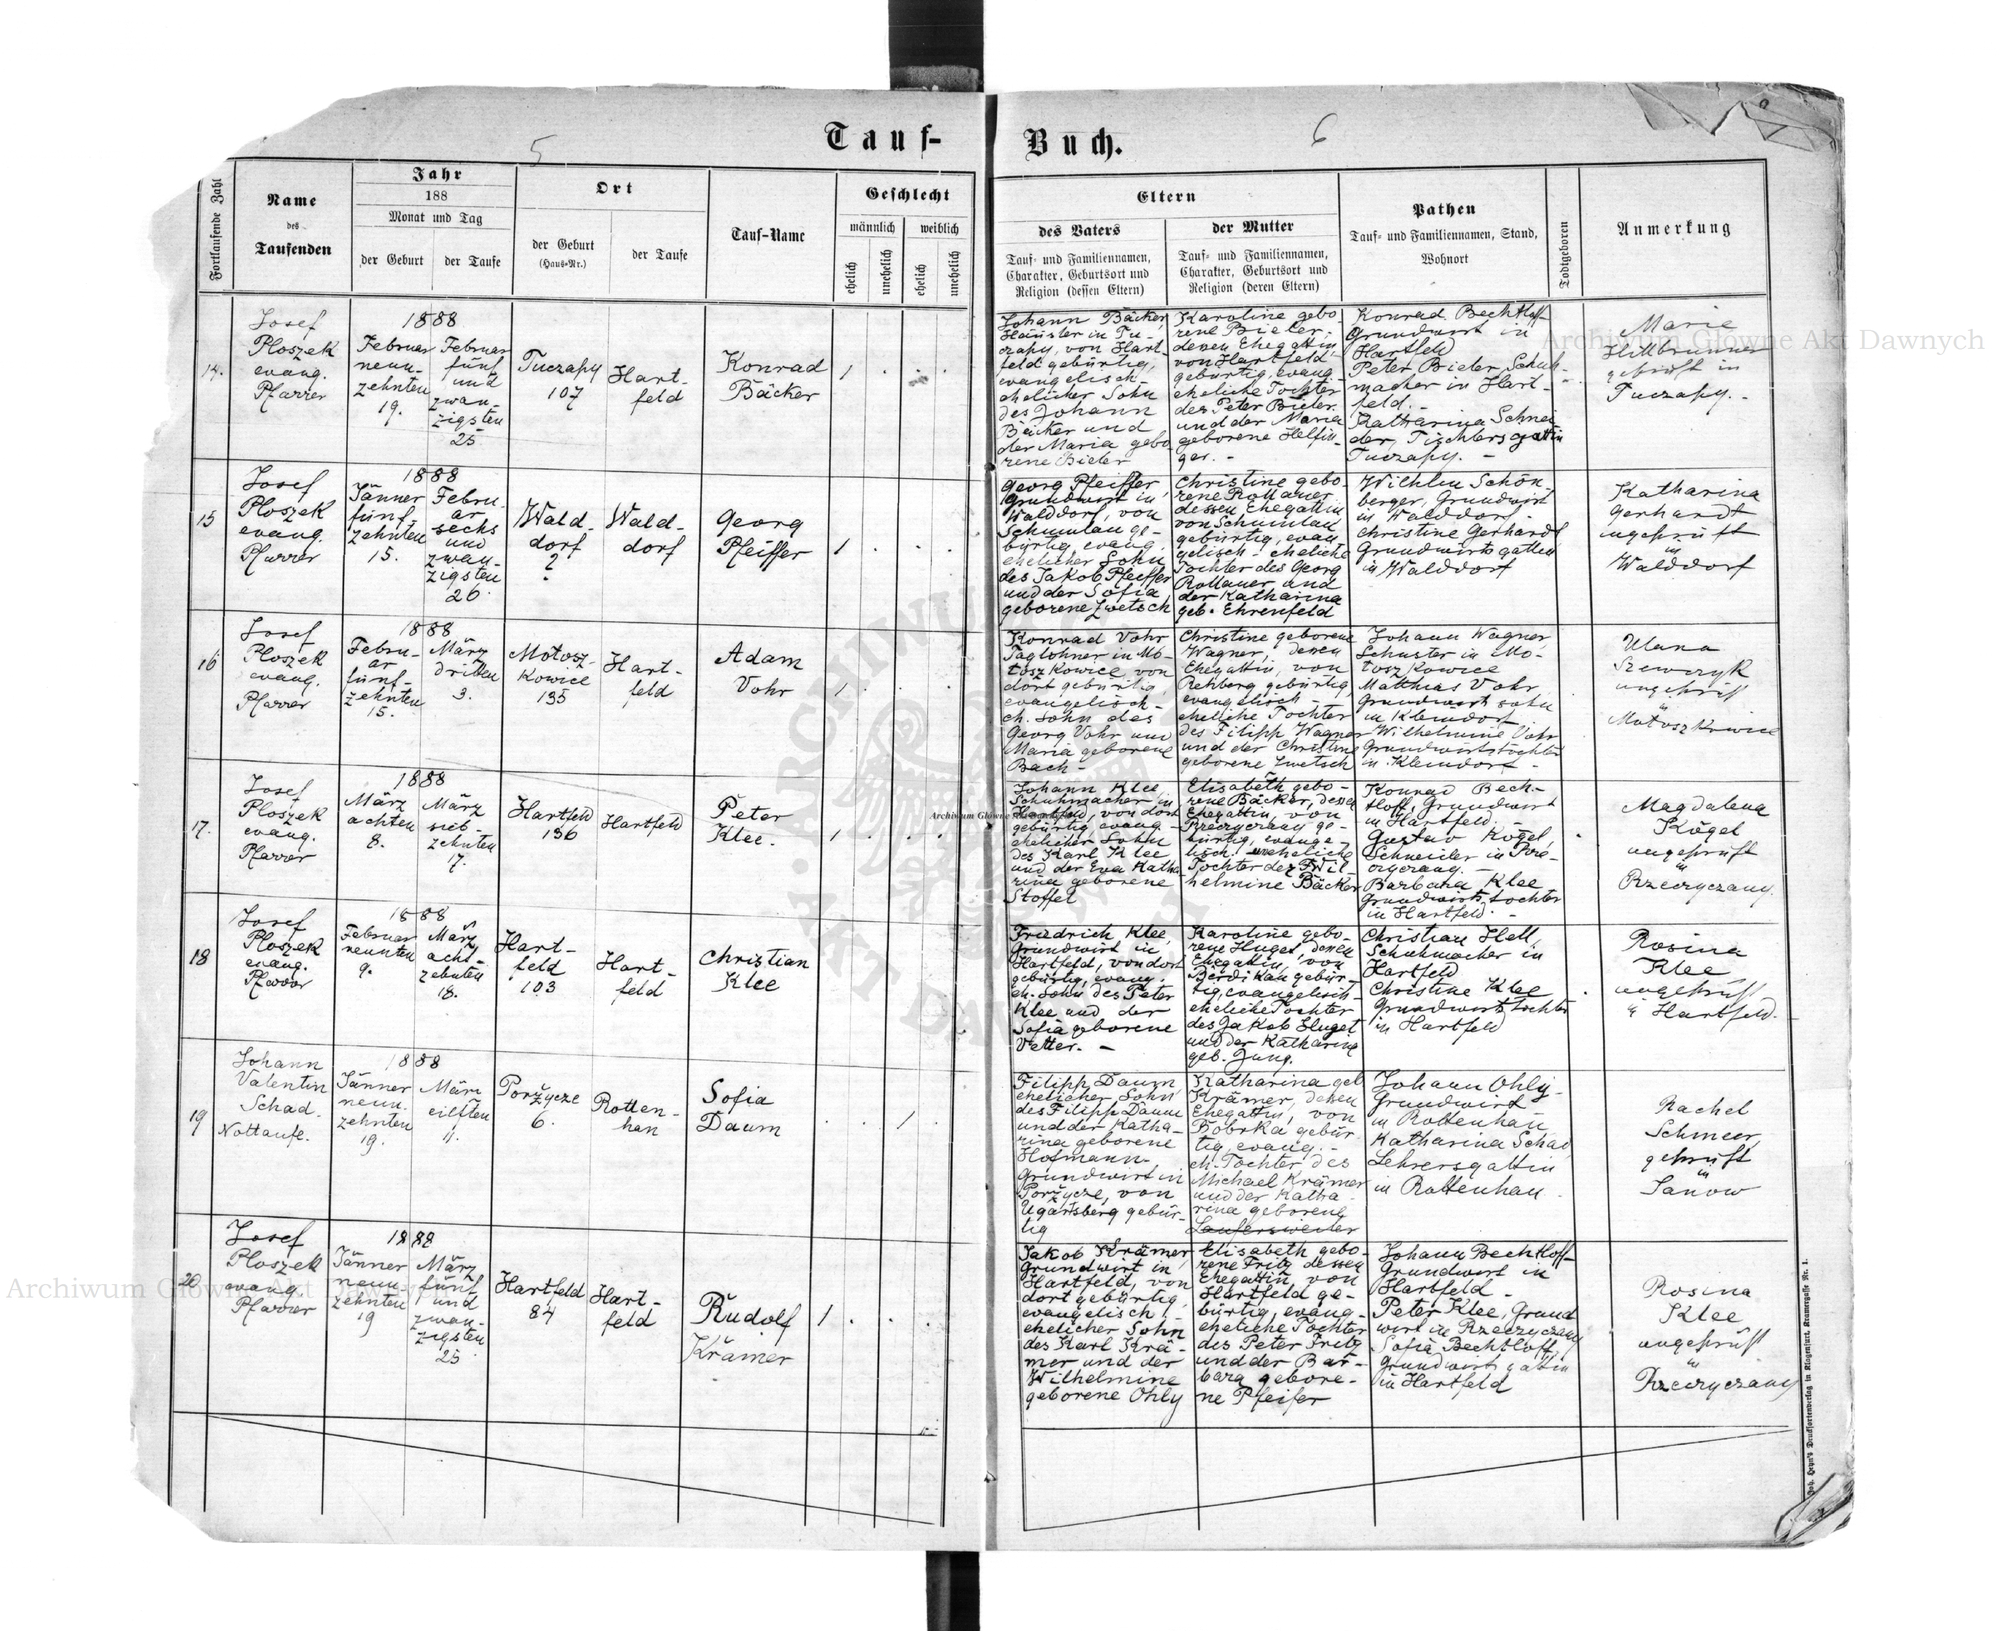 5
6
Tauf-Buch.
Fortlaufende Zahl
Name
des
Taufenden
Jahr
188
Monat und Tag
der Geburt
der Taufe
Ort
der Geburt
(Haus-Nr.)
der Taufe
Tauf-Name
Geschlecht
männlich
weiblich
ehelich
unehelich
ehelich
unehelich
Eltern
des Vaters
Tauf- und Familiennamen,
Charakter, Geburtsort und
Religion (dessen Eltern)
der Mutter
Tauf- und Familiennamen,
Charakter, Geburtsort und
Religion (deren Eltern)
Pathen
Tauf- und Familiennamen, Stand,
Wohnort
Todtgeboren
Anmerkung
14.
Josef
Ploszek
evang.
Pfarrer
1888
Februar
neun-
zehnten
19.
Februar
fünf
und
zwan-
zigsten
25
Tuczapy
107
Hart-
feld
Konrad
Bäcker
1
Johann Bäcker,
Häusler in Tu-
czapy, von Hart-
feld gebürtig,
evangelisch-
ehelicher Sohn
des Johann
Bäcker und
der Maria gebo-
rene Bieler
Karoline gebo
rene Bieler,
deren Ehegattin,
von Hartfeld
gebürtig, evang.
eheliche Tochter
des Peter Bieler
und der Maria
geborene Helfin-
ger. -
Konrad Bechtloff
Grundwirt in
Hartfeld
Peter Bieler, Schuh-
macher in Hart-
feld. -
Katharina Schnei
der, Tischlersgattin
Tuczapy. -
Marie
Hillbrunner
geprüft in
Tuczapy. -
15
Josef
Ploszek
evang.
Pfarrer
1888
Jänner
fünf
zehnten
15.
Febru
ar
sechs
und
zwan-
zigsten
26
Wald-
dorf
2
Wald-
dorf
Georg
Pfeiffer
1
Georg Pfeiffer,
Grundwirt in
Walddorf, von
Schumlau ge-
bürtig, evang.
ehelicher Sohn
des Jakob Pfeiffer
und der Sofia
geborene Zwetsch
Christine gebo-
rene Rollauer
dessen Ehegattin
von Schumlau
gebürtig, evan
gelisch - eheliche
Tochter des Georg
Rollauer und
der Katharina
geb. Ehrenfeld
Wilhlm Schön-
berger, Grundwirt
in Walddorf
Christine Gerhardt
Grundwirtsgattin
in Walddorf
Katharina
Gerhardt
ungeprüft
in
Walddorf
16
Josef
Ploszek
evang.
Pfarrer
1888
Febru-
ar
fünf-
zehnten
15.
März
dritten
3.
Motosz-
kowice
135
Hart-
feld
Adam
Vohr
1
Konrad Vohr
Taglöhner in Mo-
toszkowice von
dort gebürtig,
evangelisch-
eh. Sohn des
Georg Vohr und
Maria geborene
Bach -
Christine geborene
Wagner, deren
Ehegattin, von
Rehberg gebürtig,
evangelisch -
eheliche Tochter
des Filipp Wagner
und der Christine
geborene Zwetsch
Johann Wagner
Schuster in Mo-
toszkowice
Matthias Vohr
Grundwirtssohn
in Kleindorf
Wilhelmine Vohr
Grundwirtstochter
in Kleindorf -
Ulana
Szewczyk
ungeprüft
in
Motoszkowice
17.
Josef
Ploszek
evang.
Pfarrer
1888
März
achten
8.
März
sieb-
zehnten
17.
Hartfeld
136
Hartfeld
Peter
Klee.
1
Johann Klee,
Schuhmacher in
Hartfeld, von dort
gebürtig, evang-
ehelicher Sohn
des Karl Klee
und der Eva Katha
rina geborene
Stoffel
Elisabeth gebo-
rene Bäcker, dessen
Ehegattin, von
Rzeczyczany ge-
bürtig, evange-
lisch - uneheliche
Tochter der Wil-
helmine Bäcker
Konrad Bech-
tloff, Grundwirt
in Hartfeld. -
Gustav Kögel,
Schneider in Rze-
czyczany. -
Barbara Klee
Grundwirtstochter
in Hartfeld. -
Magdalena
Kögel
ungeprüft
in
Rzeczyczany.
18
Josef
Ploszek
evang.
Pfarrer
1888
Februar
neunten
9.
März
acht-
zehnten
18.
Hart-
feld
103
Hart-
feld
Christian
Klee
Friedrich Klee,
Grundwirt in
Hartfeld, von dort
gebürtig, evang-
eh. Sohn des Peter
Klee und der
Sofia geborene
Vetter. -
Karoline gebo-
rene Huget, deren
Ehegattin, von
Berdikau gebür-
tig, evangelisch-
eheliche Tochter
des Jakob Huget
und der Katharina
geb. Jung.
Christian Hell,
Schuhmacher in
Hartfeld
Christine Klee
Grundwirtstochter
in Hartfeld
Rosina
Klee
ungeprüft
in Hartfeld.
19
Johann
Valentin
Schad.
Nottaufe.
1888
Jänner
neun-
zehnten
19.
März
eilften
11.
Porżycze
6.
Rotten-
han
Sofia
Daum
1
Filipp Daum,
ehelicher Sohn
des Filipp Daum
und der Katha-
rina geborene
Hofmann-
Grundwirt in
Porżycze, von
Ugartsberg gebür-
tig
Katharina geb
Krämer, deren
Ehegattin, von
Bobrka gebür
tig, evang. -
eh. Tochter des
Michael Krämer
und der Katha-
rina geborene
Laufersweiler
Johann Ohly-
Grundwirt
in Rottenhan
Katharina Schad,
Lehrersgattin
in Rottenhan
Rachel
Schmeer,
geprüft
in
Janow
20
Josef
Ploszek
evang.
Pfarrer
1888
Jänner
neun
zehnten
19
März
fünf
und
zwan-
zigsten
25
Hartfeld
84
Hart-
feld
Rudolf
Krämer
1
Jakob Krämer,
Grundwirt in
Hartfeld, von
dort gebürtig,
evangelisch,
ehelicher Sohn
des Karl Krä-
mer und der
Wilhelmine
geborene Ohly
Elisabeth gebo-
rene Fritz dessen
Ehegattin, von
Hartfeld ge-
bürtig, evang-
eheliche Tochter
des Peter Fritz
und der Bar-
bara gebore-
ne Pfeifer
Johann Bechtloff
Grundwirt in
Hartfeld -
Peter Klee, Grund
wirt in Rzeczyczany
Sofia Bechtloff,
Grundwirtsgattin
in Hartfeld
Rosina
Klee
ungeprüft
in
Rzeczyczany
Joh. Heyn's Drucksortenverlag in Klagenfurt, Kramergasse Nr. 1.
Archiwum Główne Akt Dawnych
Archiwum Główne Akt Dawnych
Archiwum Główne Akt Dawnych